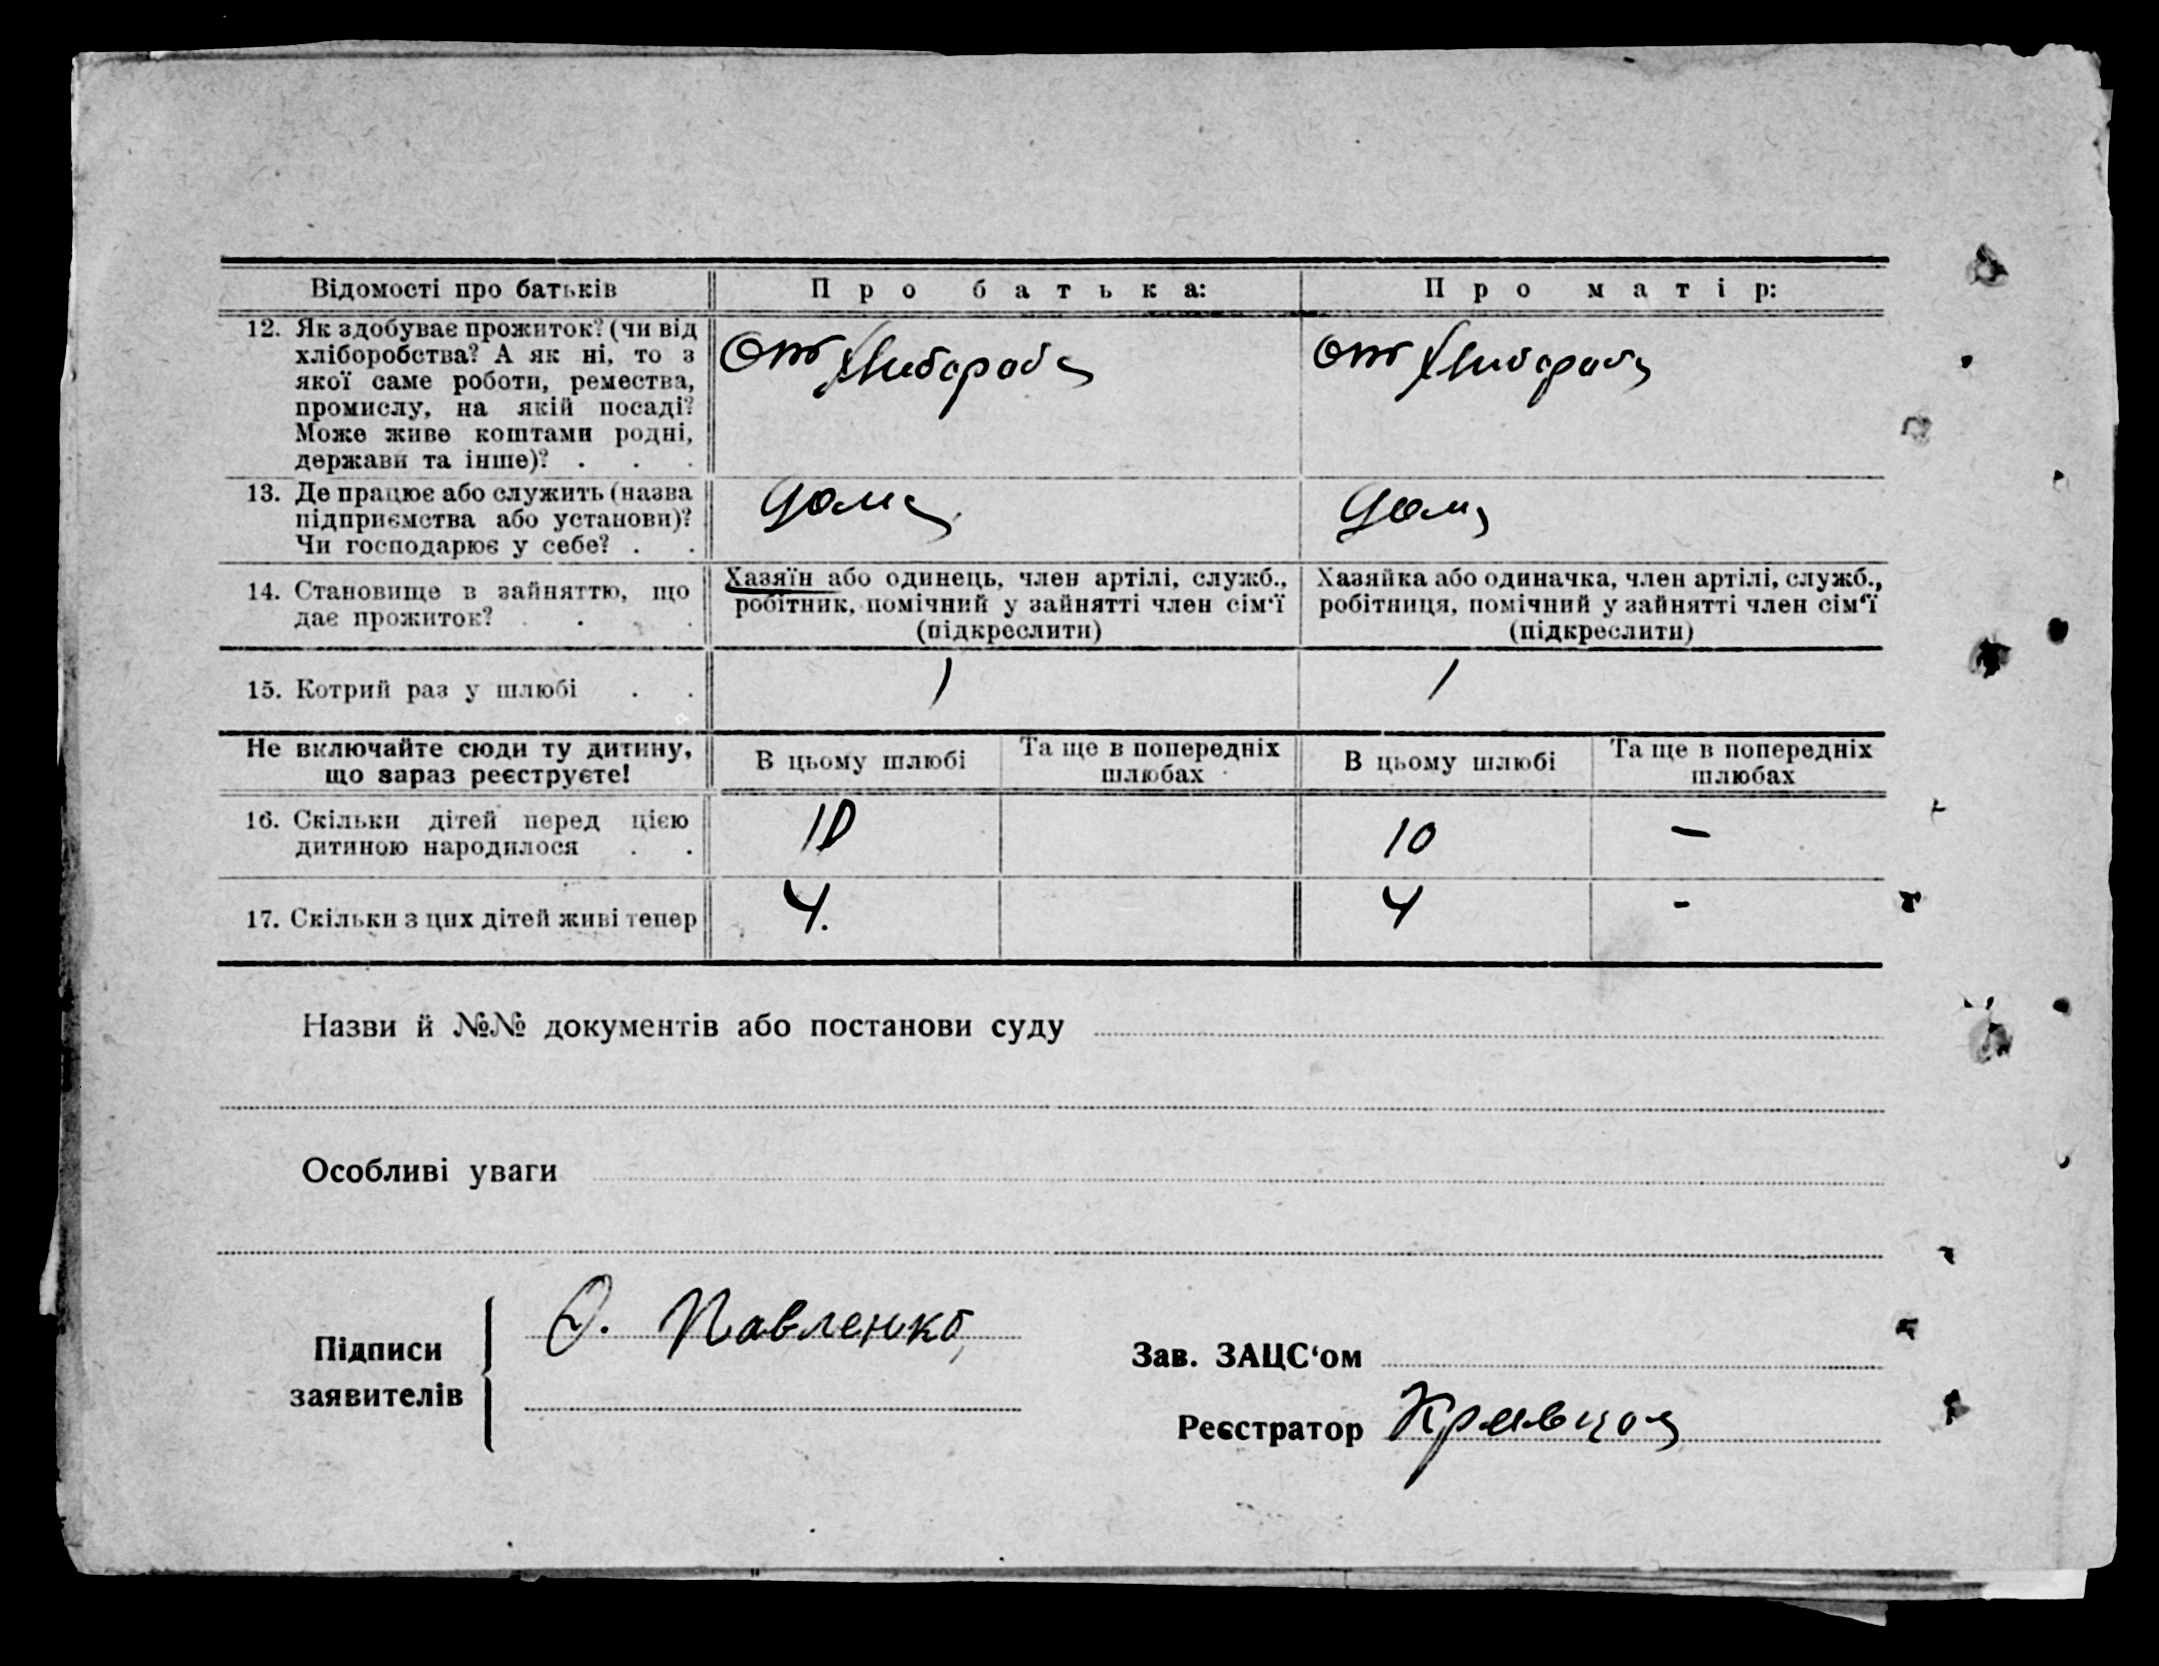 Відомості про батьків П р о б а т ь к а: П р о м а т і р:
12. Як здобуває прожиток? (чи від
хліборобства? А як ні, то з
якої саме роботи, ремества,
промислу, на якій посаді?
Може живе коштами родні,
держави та інше)? . . .
От От
13. Де працює або служить (назва
підприємства або установи)?
Чи господарює у себе? . .
дома дома
14. Становище в зайняттю, що
дає прожиток? . . .
Хазяїн або одинець, член артілі, служб.,
робітник, помічний у зайнятті член сім‘ї
(підкреслити)
Хазяйка або одиначка, член артілі, служб.,
робітниця, помічний у зайнятті член сім‘ї
(підкреслити)
15. Котрий раз у шлюбі . . 1 1
Не включайте сюди ту дитину,
що зараз реєструєте!
В цьому шлюбі
Та ще в попередніх
шлюбах
В цьому шлюбі
Та ще в попередніх
шлюбах
16. Скільки дітей перед цією
дитиною народилося . .
10 10 –
17. Скільки з цих дітей живі тепер 4. 4 -
Назви й №№ документів або постанови суду
Особливі уваги
Підписи
заявителів
О. Павленко
Зав. ЗАЦС‘ом
Реєстратор